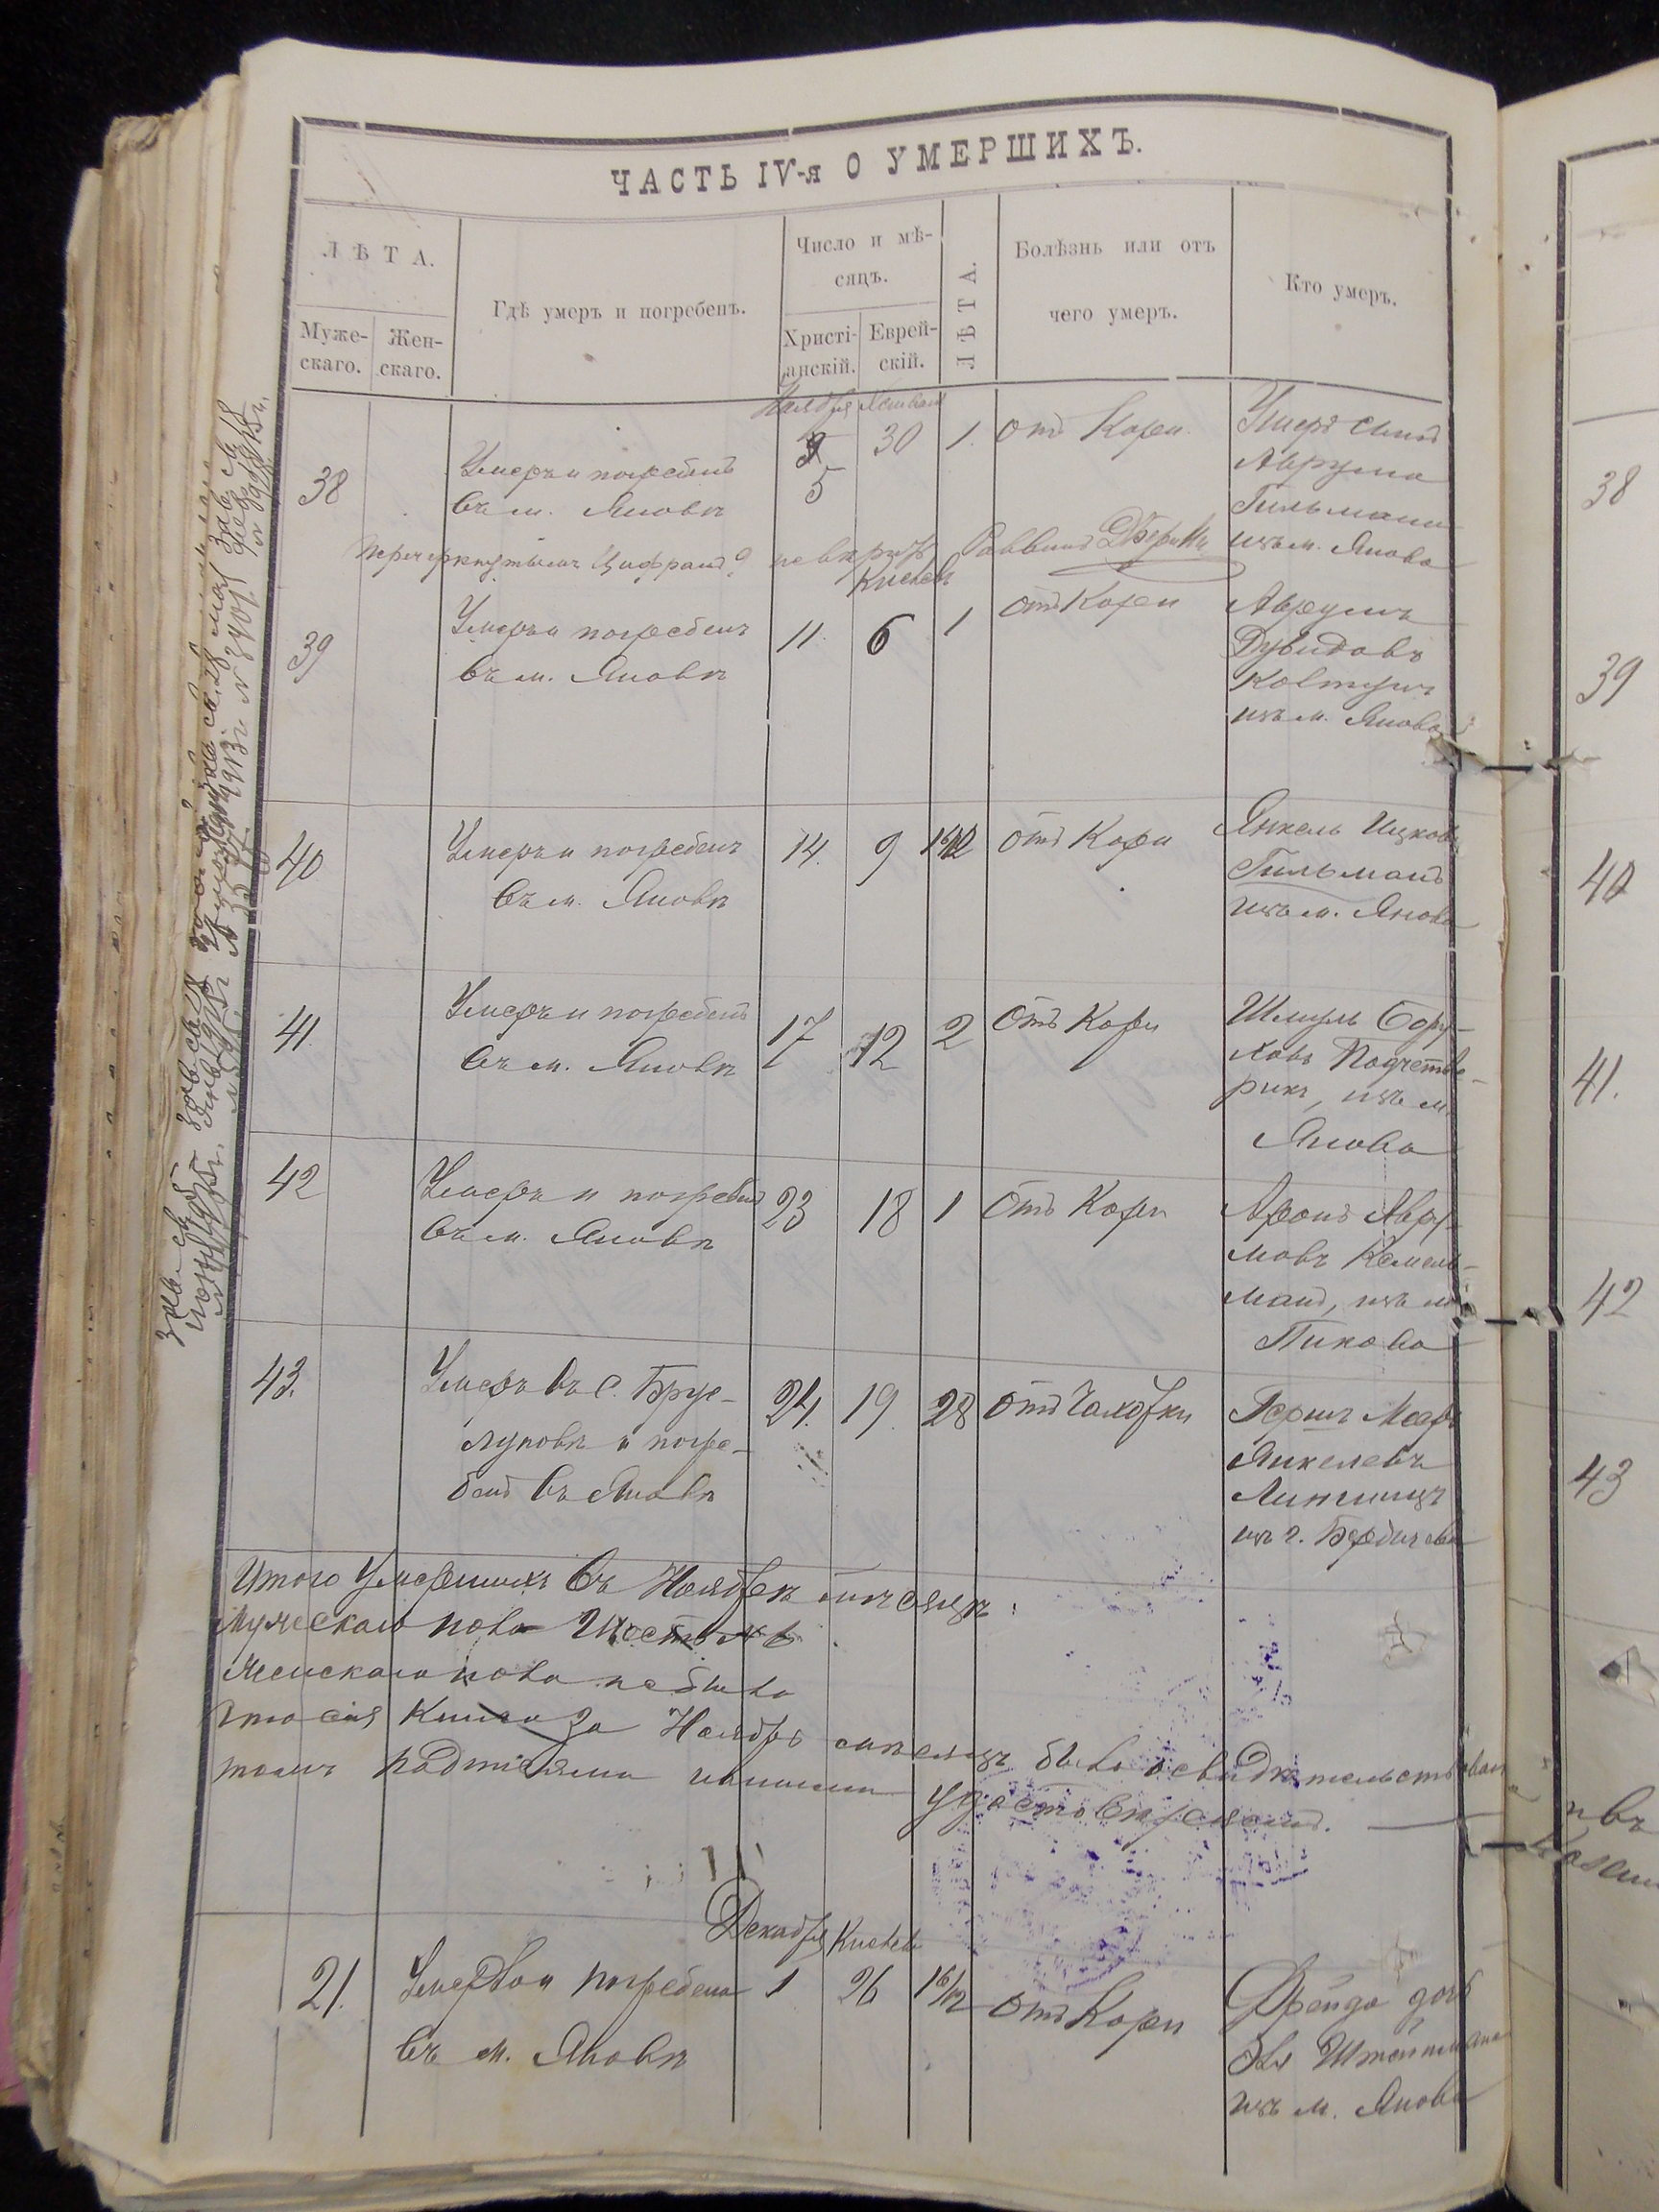 ЧАСТЬ IV-я О УМЕРШИХЪ.
ЛѢТА.
Муже-
скаго.
Жен-
скаго.
Гдѣ умеръ и погребенъ.
Число и мѣ-
сяцъ.
Христі-
анскій.
Еврей-
скій.
ЛѢТА.
Болѣзнь или отъ
чего умеръ.
Кто умеръ.
Ноября Хешвань
38
Умеръ и погребенъ
въ м. Яновѣ
5
30
1.
отъ Кори
Умеръ сынъ
Аврума
Гильмана
изъ м. Янова
38
Раввинъ
Кислевъ
39
Умеръ и погребенъ
въ м. Яновѣ
11.
6
1
отъ Кори
Аврумъ
Дувидовъ
Ковтунъ
изъ м. Янова
39
40
Умеръ и погребенъ
въ м. Яновѣ
14.
9
отъ Кори
Янкель Ицковъ
Гильманъ
изъ м. Янова
40
41.
Умеръ и погребенъ
въ м. Яновѣ
17
12
2
отъ Кори
Шмуль Бору-
ховъ Подчетве-
рикъ, изъ м.
Янова
41.
42
Умеръ и погребенъ
въ м. Яновѣ
23
18
1
отъ Кори
Аронъ Авру-
мовъ Кемель-
манъ, изъ м.
Пикова
42
43.
Умеръ въ с. Брус-
луновѣ и погре-
бенъ въ Яновѣ
24.
19.
28
отъ Чахотки
Гершъ Мееръ
Янкелевъ
Лифшицъ
изъ г. Бердичева
43
Итого умершихъ въ Ноябрѣ мѣсяцѣ:
Мужескаго пола Шесть № 6
Женскаго пола не было
Что сія книга за Ноябрь мѣсяцъ была освидѣтельствована
томъ подписями нашими удостовѣряемъ.
Декабря Кислевъ
21.
Умерла и погребена
въ м. Яновѣ
1
26
16/12
отъ Кори
Фрейда дочь
Эля Штейнмана
изъ м. Янова